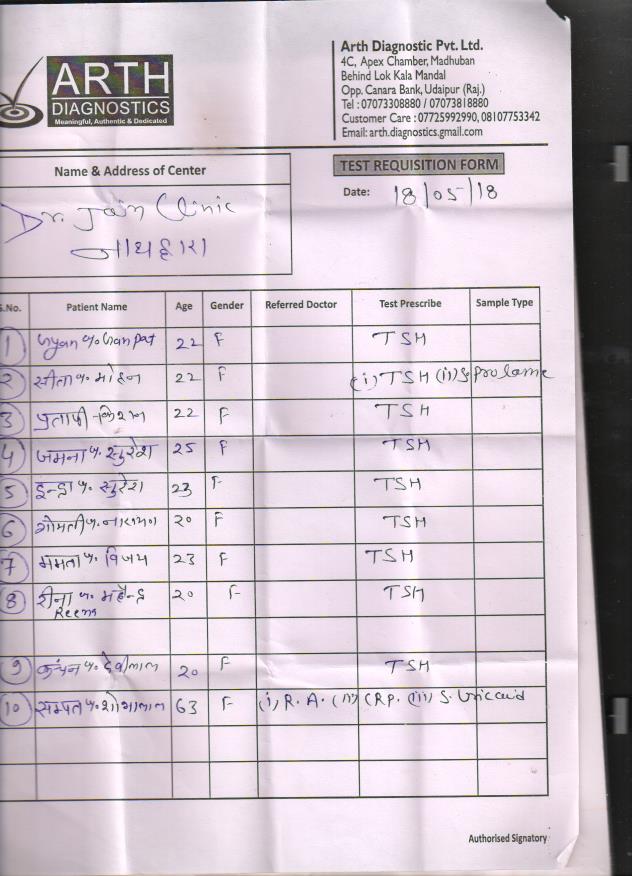 ARTH
DIAGNOSTICS
Meaningful, Authentic & Dedicated
Arth Diagnostic Pvt. Ltd.
4C, Apex Chamber, Madhuban
Behind Lok Kala Mandal
Opp. Canara Bank, Udaipur (Raj.)
Tel : 07073308880 / 07073818880
Customer Care : 07725992990, 08107753342
Email: arth.diagnostics.gmail.com
Name & Address of Center
TEST REQUISITION FORM
Date: 18/05/18
Dr. Jain Clinic
नाथद्वारा
S.No. Patient Name Age Gender Referred Doctor Test Prescribe Sample Type
1 Gyan w/o Ganpat 22 F TSH
2 सीता w/o मोहन 22 F (i) TSH (ii) S.
3 प्रतापी किशन 22 F TSH
4 जमना w/o सुरेश 25 F TSH
5 इन्द्रा w/o सुरेश 23 F TSH
6 गोमती w/o नारायण 20 F TSH
7 ममता w/o विजय 23 F TSH
8 रीना w/o महेन्द्र 20 F TSH
Reena
9 कंचन w/o देवीलाल 20 F TSH
10 सम्पत w/o शोभालाल 63 F (i) R.A. (ii) CRP. (iii) S. Uric acid
Authorised Signatory